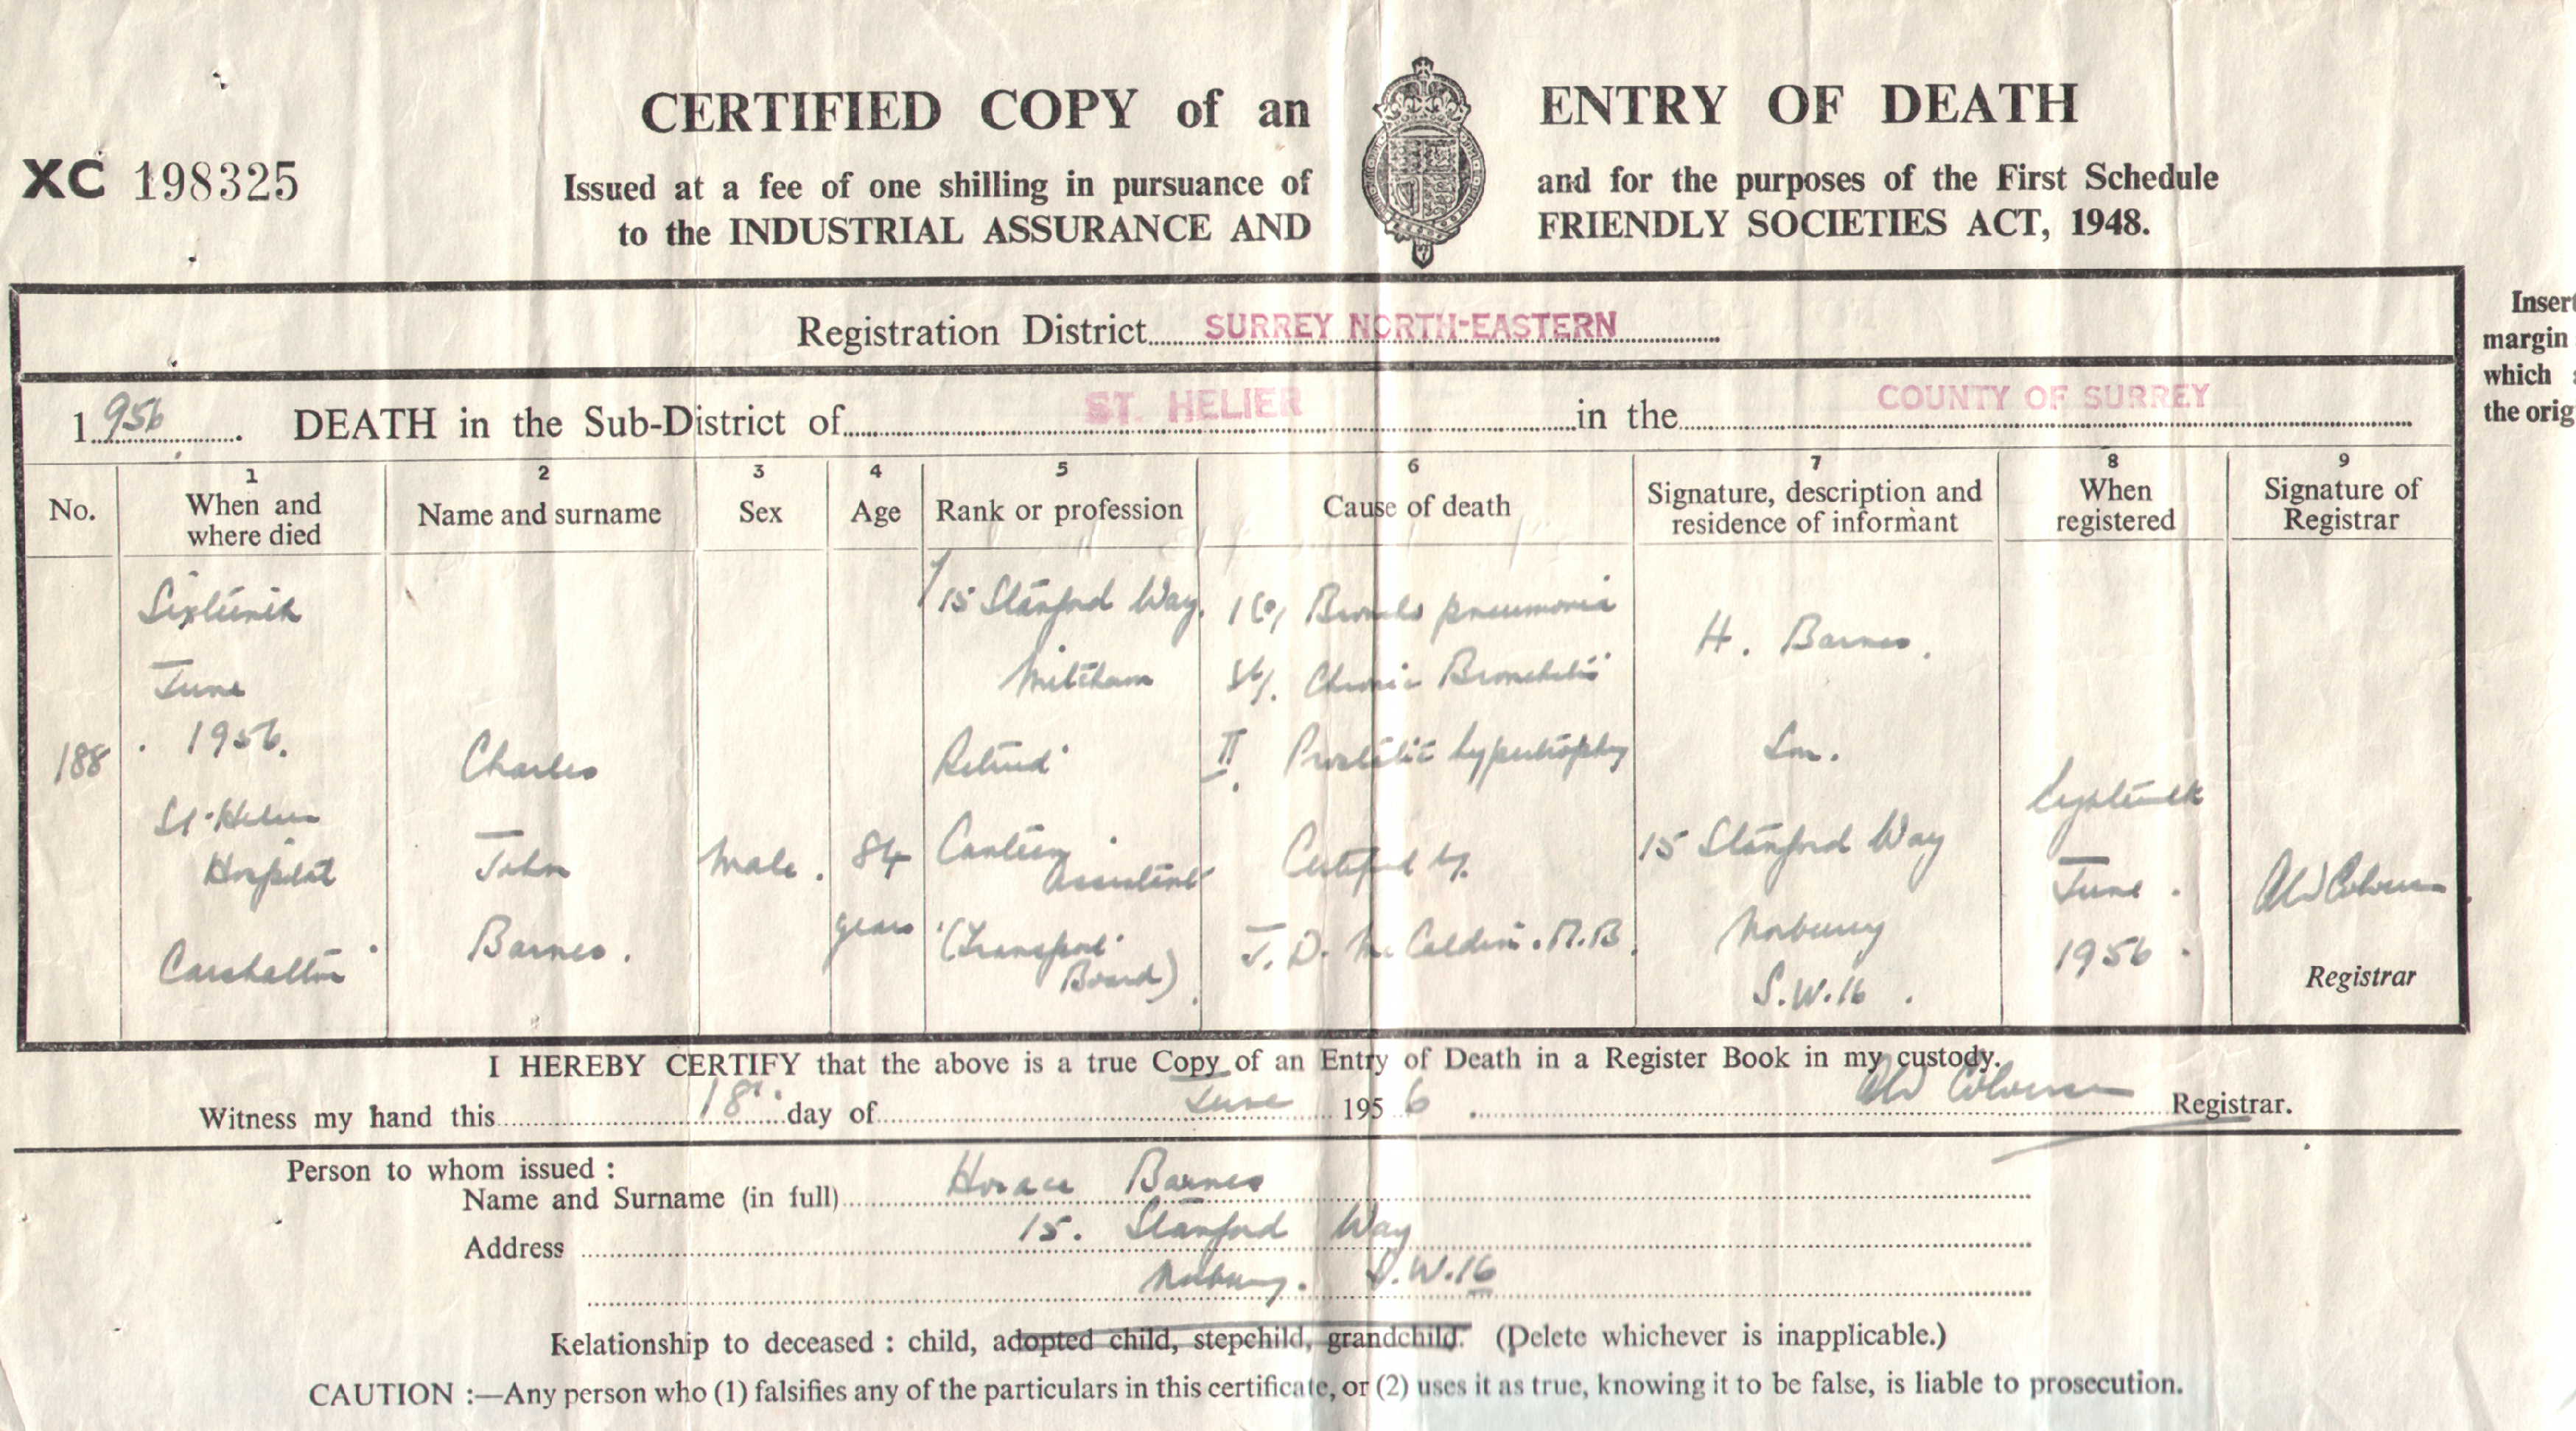 CERTIFIED COPY of an ENTRY OF DEATH
XC 198325
Issued at a fee of one shilling in pursuance of and for the purposes of the First Schedule
to the INDUSTRIAL ASSURANCE AND FRIENDLY SOCIETIES ACT, 1948.
Registration District SURREY NORTH-EASTERN
1956 DEATH in the Sub-District of ST. HELIER in the COUNTY OF SURREY
No.
1
When and
where died
2
Name and surname
3
Sex
4
Age
5
Rank or profession
6
Cause of death
7
Signature, description and
residence of informant
8
When
registered
9
Signature of
Registrar
188
Sixteenth
June
1956.
St. Helier
Hospital
Carshalton
Charles
John
Barnes.
Male.
84
years
15 Stanford Way.
Mitcham
Retired
Canteen
Assistant
(Transport
Board)
1(a) Broncho pneumonia
(b). Chronic Bronchitis
II. Prostatic hypertrophy
Certified by
J. D. M. B.
H. Barnes.
Son.
15 Stanford Way
Norbury
S.W.16.
Eighteenth
June.
1956.
Registrar
I HEREBY CERTIFY that the above is a true Copy of an Entry of Death in a Register Book in my custody.
Witness my hand this 18th day of June 1956 Registrar.
Person to whom issued :
Name and Surname (in full) Horace Barnes
Address 15. Stanford Way
Norbury. S.W.16
Relationship to deceased : child, adopted child, stepchild, grandchild. (Delete whichever is inapplicable.)
CAUTION :—Any person who (1) falsifies any of the particulars in this certificate, or (2) uses it as true, knowing it to be false, is liable to prosecution.
Insert
margin
which
the orig